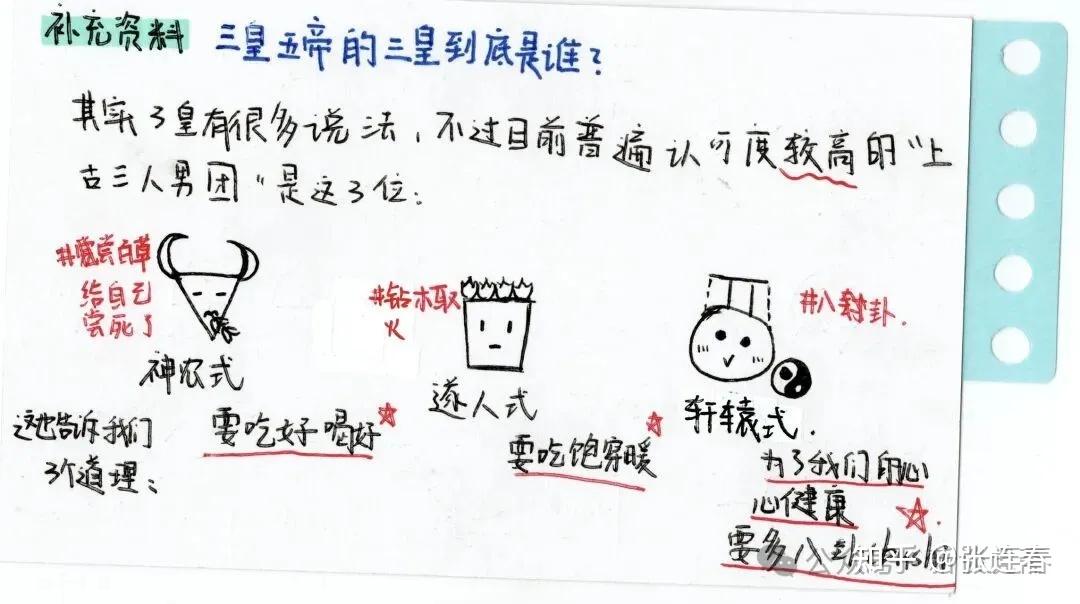 补充资料 三皇五帝的三皇到底是谁?
其实3皇有很多说法，不过目前普遍认可度较高的"上
古三人男团"是这3位:
#尝百草
给自己
尝死了
神农式
#钻木取
火
遂人式
#八卦.
轩辕式.
这也告诉我们
3个道理:
要吃好喝好
要吃饱穿暖
为了我们的心
心健康
要多八卦
知乎 @张连春